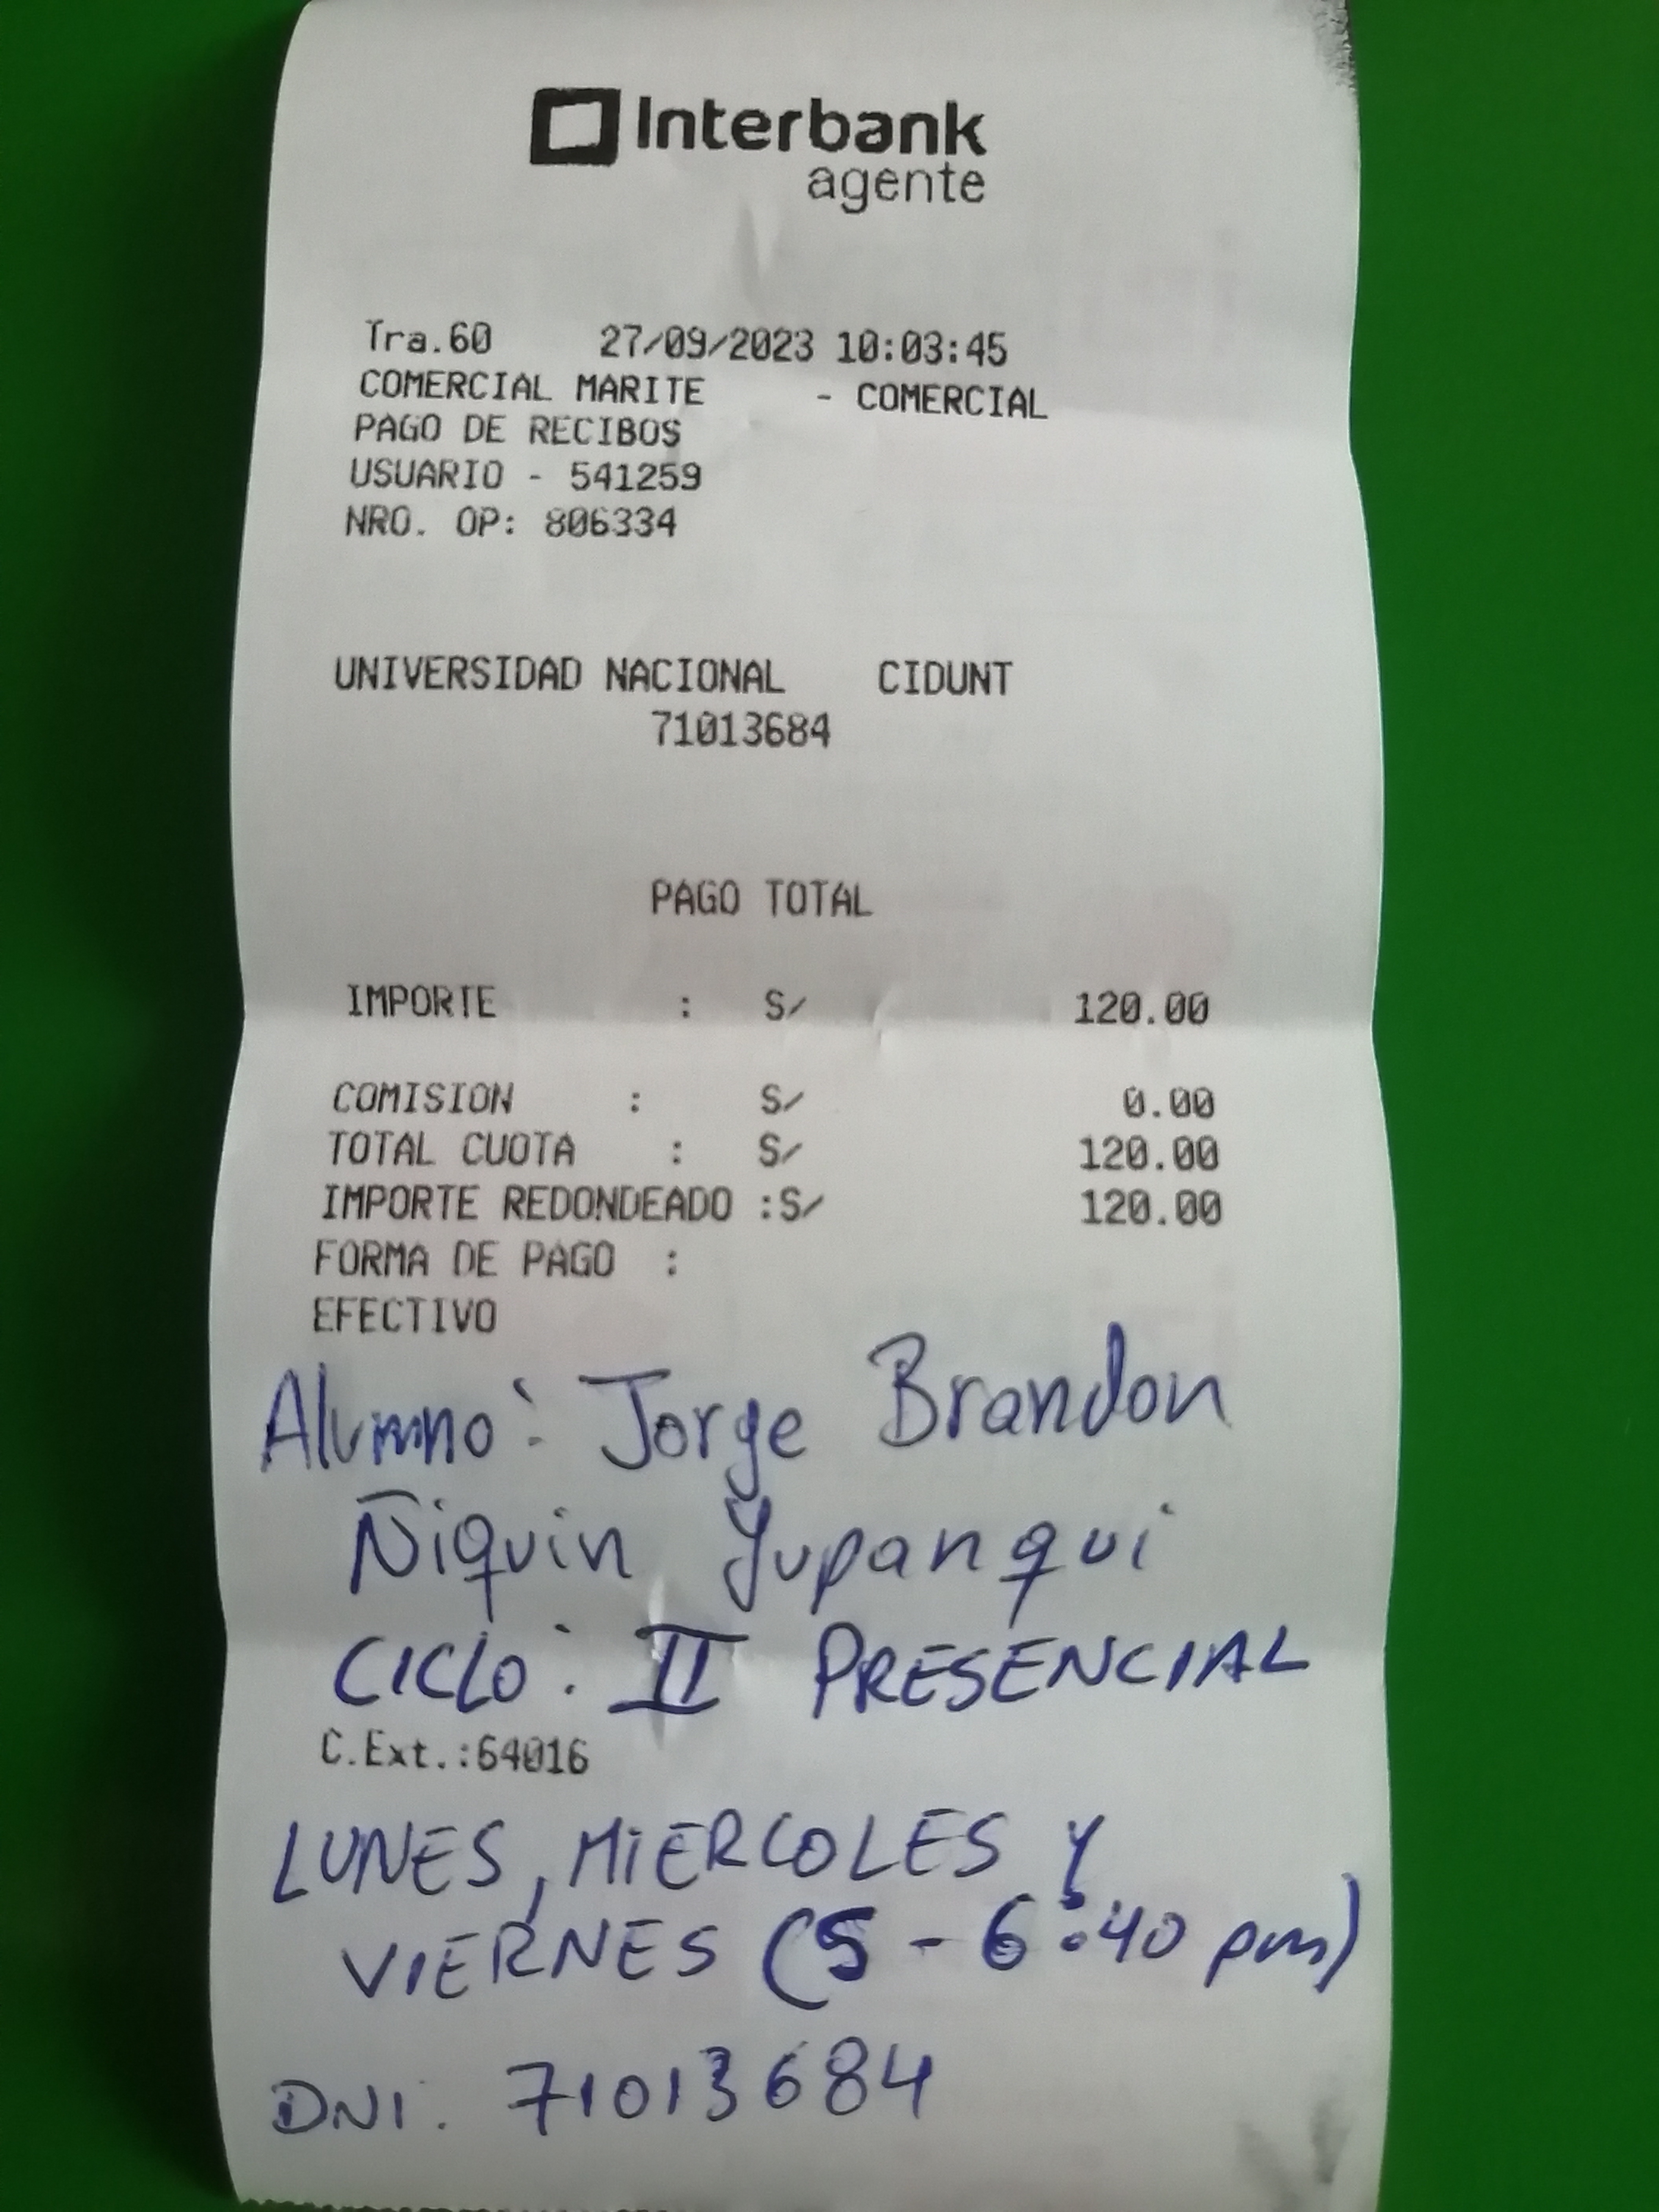 Interbank
agente
Tra.60 27/09/2023 10:03:45
COMERCIAL MARITE - COMERCIAL
PAGO DE RECIBOS
USUARIO - 541259
NRO. OP: 806334
UNIVERSIDAD NACIONAL CIDUNT
71013684
PAGO TOTAL
IMPORTE : S/ 120.00
COMISION : S/ 0.00
TOTAL CUOTA : S/ 120.00
IMPORTE REDONDEADO :S/ 120.00
FORMA DE PAGO :
EFECTIVO
Alumno: Jorge Brandon
Ñiquin Yupanqui
CICLO: II PRESENCIAL
C.Ext.:64016
LUNES, MIERCOLES Y
VIERNES (5 - 6:40 pm)
DNI: 71013684